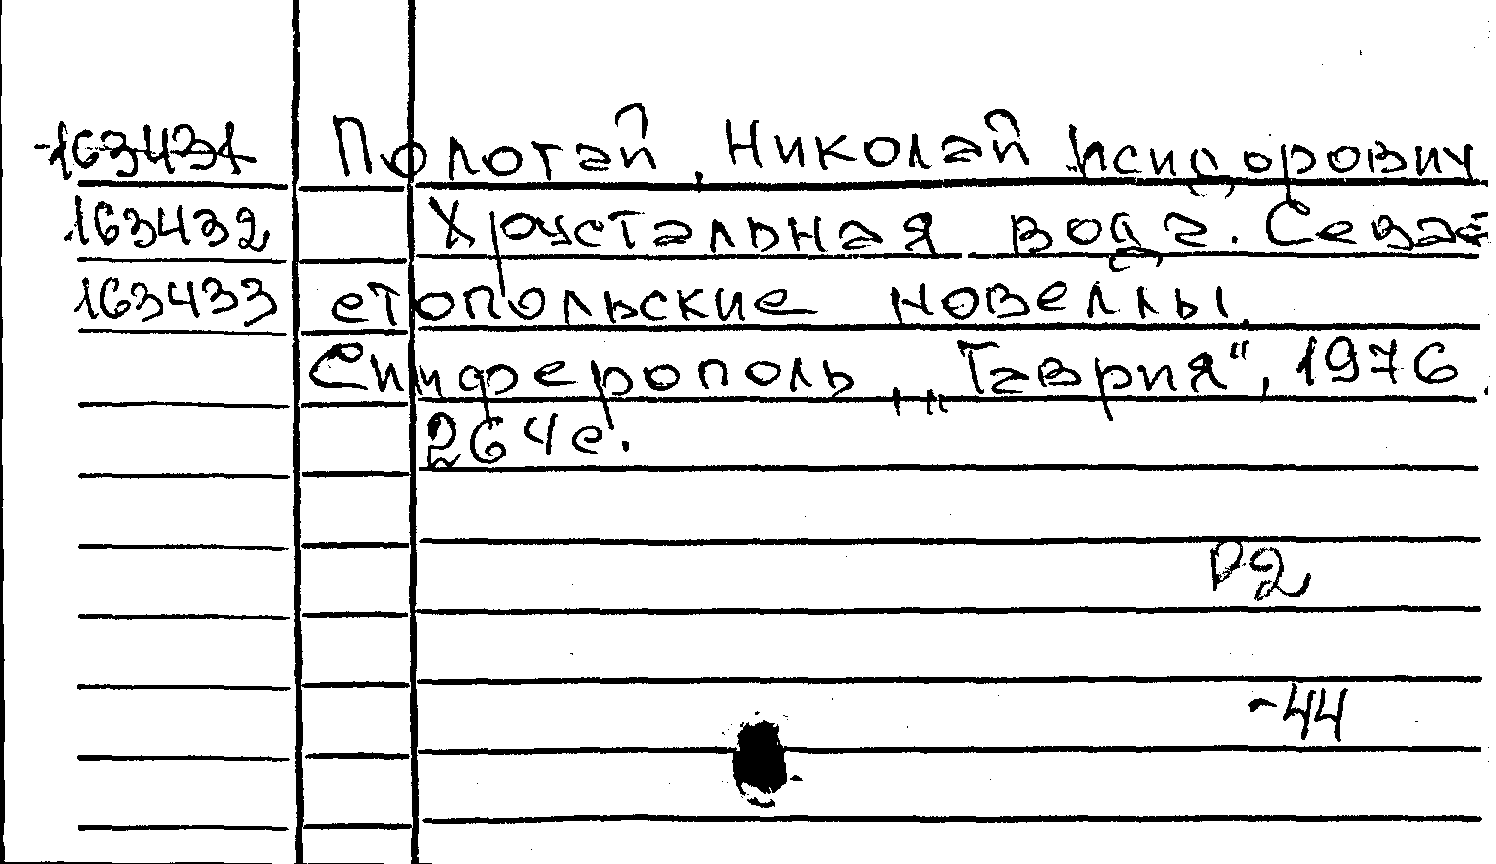 163431 Полотай, Николай Исидорович
163432 Хрустальная вода. Севас-
163433 стопольские новеллы.
Симферополь, „Таврия“, 1976.
264 с.
Р2
-44